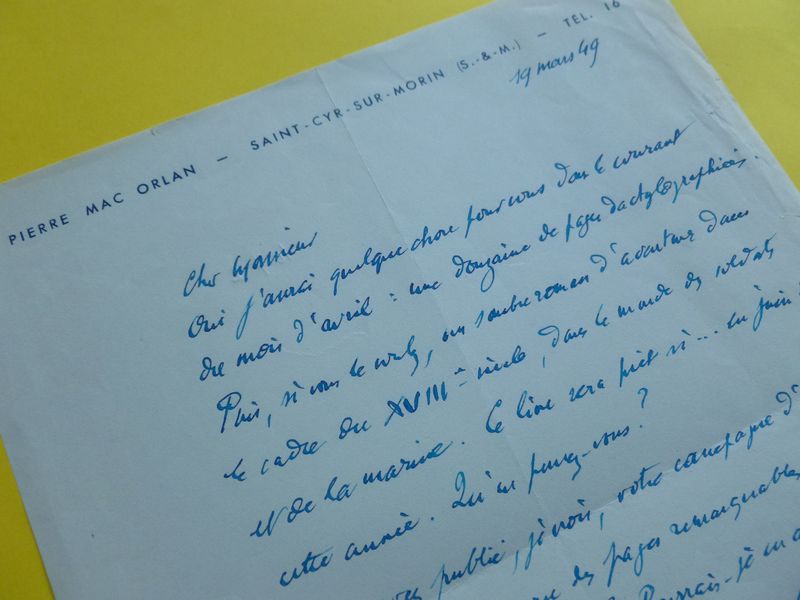 PIERRE MAC ORLAN — SAINT-CYR-SUR-MORIN (S.-&-M.) — TEL. 16
19 mars 49
Cher Monsieur
Oui j'aurai quelque chose pour vous dans le courant
du mois d'avril : une douzaine de pages dactylographiées.
Puis, si vous le voulez, un sombre roman d'aventures dans
le cadre du XVIIIe siècle, dans le monde des soldats
et de la marine. Ce livre sera prêt si... en juin
cette année. Qu'en pensez-vous ?
publié, je crois, votre campagne d'
des pages remarquables
Pourrais-je